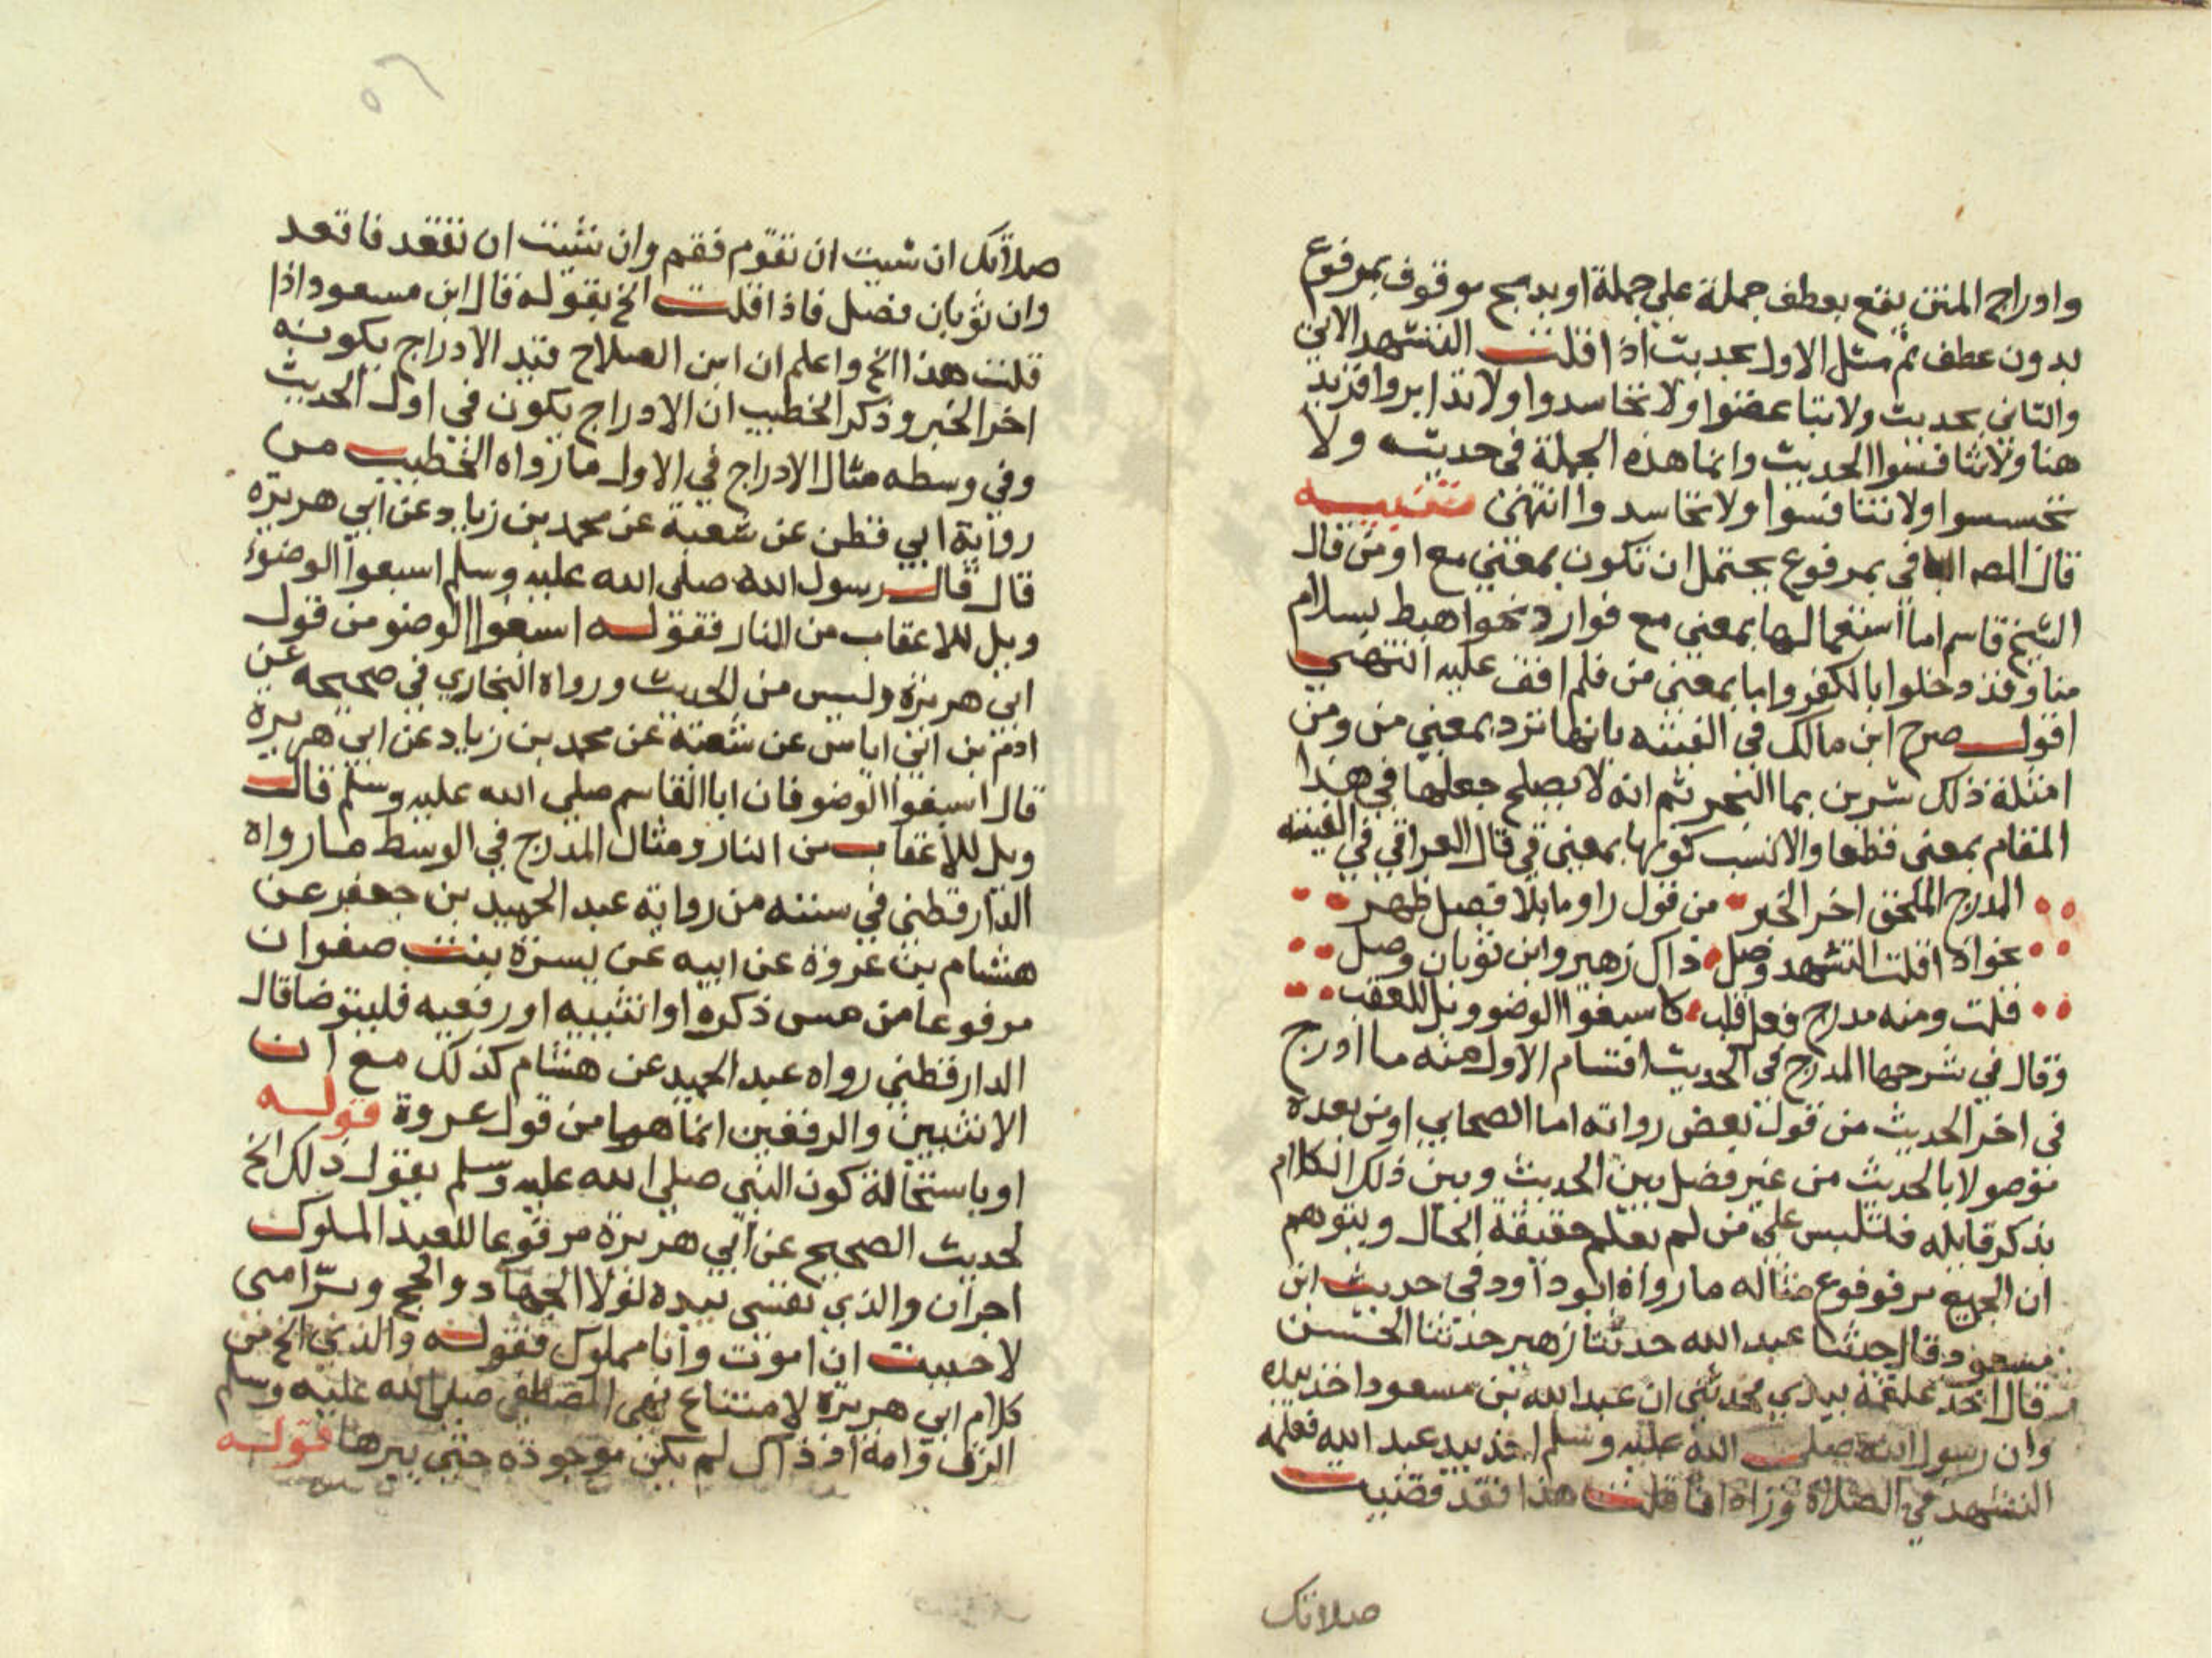 وادراج المتن يقع بعطف جملة على جملة او بدمج موقوف بمرفوع
بدون عطف ثم مثل الاول بحديث اذا قلت التشهد الاتي
والثاني بحديث ولا تباغضوا ولا تحاسدوا ولا تدابروا فزيد
هنا ولا تنافسوا الحديث وانما هذه الجملة في حديث ولا
تجسسوا ولا تنافسوا ولا تحاسدوا انتهى تنبيه
قال المص البا في بمرفوع يحتمل ان تكون بمعنى مع او من قال
الشيخ قاسم اما استعمالها بمعنى مع فوارد نحو اهبط بسلام
منا وقد دخلوا بالكفر واما بمعنى من فلم اقف عليه انتهى
اقول صرح ابن مالك في الفيته بانها ترد بمعنى من ومن
امثلة ذلك شربن بما البحر ثم انه لا يصلح جعلها في هذا
المقام بمعنى قطعا والانسب كونها بمعنى في قال العراقي في الفيته
المدرج الملحق اخر الخبر من قول راو ما بلا فصل ظهر
نحو اذا قلت التشهد وصل ذاك زهير وابن ثوبان وصل
قلت ومنه مدرج قبل قلب كاسبغوا الوضو ويل للعقب
وقال في شرحها المدرج في الحديث اقسام الاول منه ما ادرج
في اخر الحديث من قول بعض رواته اما الصحابي او من بعده
موصولا بالحديث من غير فصل بين الحديث وبين ذلك الكلام
بذكر قايله فلتلبس على من لم يعلم حقيقة الحال ويتوهم
ان الجميع مرفوفوع مثاله ما رواه ابو داود في حديث ابن
مسعود قال حدثنا عبد الله حدثنا زهير حدثنا الحسن
قال اخذ علقمة بيدي فحدثني ان عبد الله بن مسعود اخذ بيده
وان رسول الله صلى الله عليه وسلم اخذ بيد عبد الله فعلمه
التشهد في الصلاة وزاد اذا قلت هذا فقد قضيت
صلاتك
صلاتك ان شيت ان تقوم فقم وان شيت ان تقعد فاقعد
وان ثوبان فصل فاذا قلت الخ بقوله قال ابن مسعود اذا
قلت هذا الخ واعلم ان ابن الصلاح قيد الادراج بكونه
اخر الخبر وذكر الخطيب ان الادراج يكون في اول الحديث
وفي وسطه مثال الادراج في الاول ما رواه الخطيب من
رواية ابي قطن عن شعبة عن محمد بن زياد عن ابي هريرة
قال قال رسول الله صلى الله عليه وسلم اسبغوا الوضوء
ويل للاعقاب من النار فقوله اسبغوا الوضو من قول
ابي هريرة وليس من الحديث ورواه البخاري في صحيحه عن
ادم بن ابي اياس عن شعبة عن محمد بن زياد عن ابي هريرة
قال اسبغوا الوضو فان ابا القاسم صلى الله عليه وسلم قال
ويل للاعقاب من النار ومثال المدرج في الوسط ما رواه
الدارقطني في سننه من رواية عبد الحميد بن جعفر عن
هشام بن عروة عن ابيه عن بسرة بنت صفوان
مرفوعا من مس ذكره او انثييه او رفغيه فليتوضا قال
الدارقطني رواه عبد الحميد عن هشام كذلك مع ان
الانثيين والرفغين انما هما من قول عروة قوله
او باستحالة كون النبي صلى الله عليه وسلم يقول ذلك الخ
لحديث الصحيح عن ابي هريرة مرفوعا للعبد المملوك
اجران والذي نفسي بيده لولا الجهاد والحج وبر امي
لاحببت ان اموت وانا مملوك فقوله والذي الخ من
كلام ابي هريرة لامتناع نهي المصطفى صلى الله عليه وسلم
الرق وامه اذ ذاك لم يكن موجودة حتى يبرها قوله